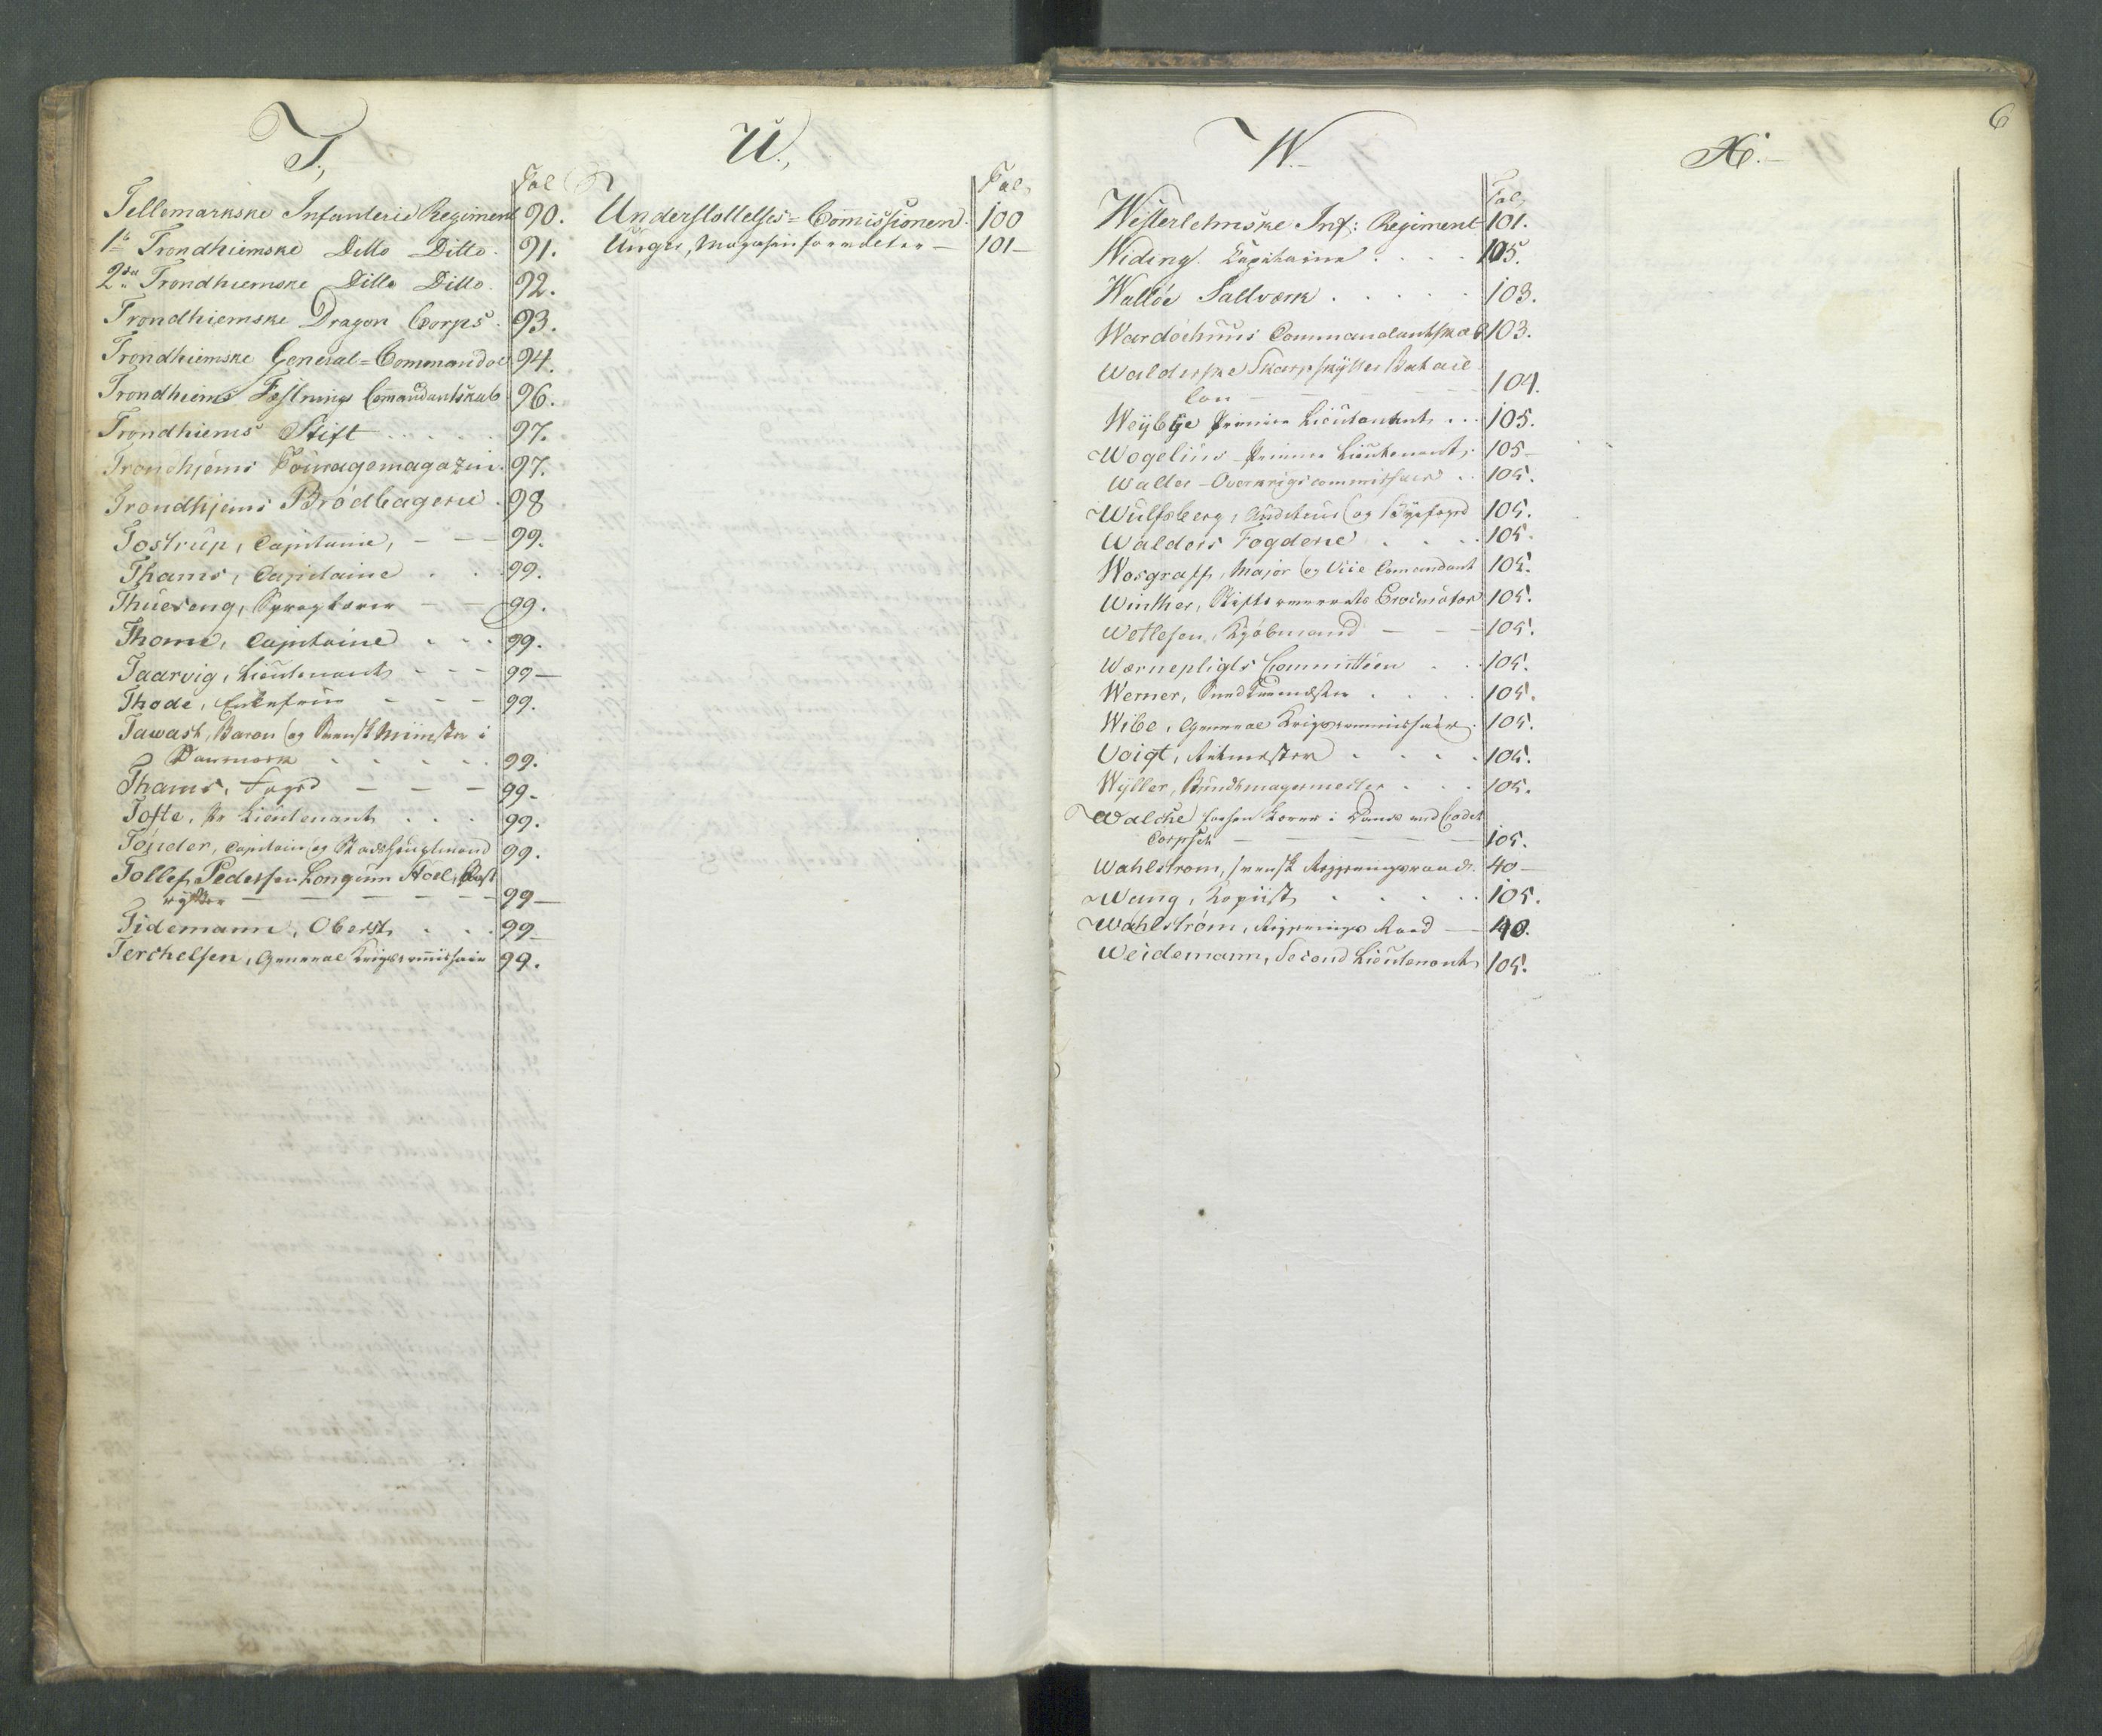 T.,
Fol
Tellemarkske Infanterie Regiment 90.
1ste Trondhiemske Ditto Ditto. 91.
2det Trondhiemske Ditto Ditto. 92.
Trondhiemske Dragon Corps. 93.
Trondhiemske General=Commandoe 94.
Trondhiems Fæstnings Commandantskab 96.
Trondhiems Stift . . . . . 97.
Trondhjems Fouragemagazin. 97.
Trondhjems Brödbagerie. 98
Tostrup, Capitaine, - - - 99.
Thams, Capitaine . . . 99.
Thueseng, - - 99.
Thome, Capitaine . . . 99.
Taarvig, Lieutenant - - - 99-
Thode, Enkefrue - - - 99.
Tawast, Baron og Svensk Minister i
Danmark . . . . . 99.
Thams, Foged - - - 99-
Tofte, Pr Lieutenant . . . 99.
Tönder, Capitain og 99.
Tollef Pedersen Longum
rytter - - - - - - 99-
Tidemann, Oberst, . . . 99-
Terchelsen, General Krigscommissair 99.
U.,
Fol.
Understöttelses=Commissionen. 100
Unger, Magasinforvalter - 101-
6
W.-
Fol,
Westerlehnske Inf: Regiment 101.
Widing. Capitaine . . . . 105.
Walloe Saltværk . . . . . 103.
Wardoehuus Commandantskab 103.
Walderske Skarpskytter Batail
lon - - - - - 104.
Weybye Premier Lieutenant . . . 105.
Wogelius Premier Lieutenant, 105-
Waller - Overkrigscommissair . . 105.
Wulfsberg, Auditeur og Byefoged 105.
Walders Fogderie . . . . 105.
Wosgraff, Major og Vice Comandant 105.
Winther, Procurator 105.
Wetlesen, Kjöbmand - - - 105.
Wærnepligts Committeen . . 105.
Werner, . . . . 105.
Wibe, General Krigscommissair. 105.
Voigt, Ritmester . . . . 105.
Wyller, Bundtmagermester . . . 105.
Walche
Corpset - - - - 105.
Wahlstrom, svensk Regjeringsraad. 40-
Wang, Kopiist . . . . . 105.
Wahlström, Regjerings Raad - 40.
Weidemann, Second Lieutenant 105.
X.-